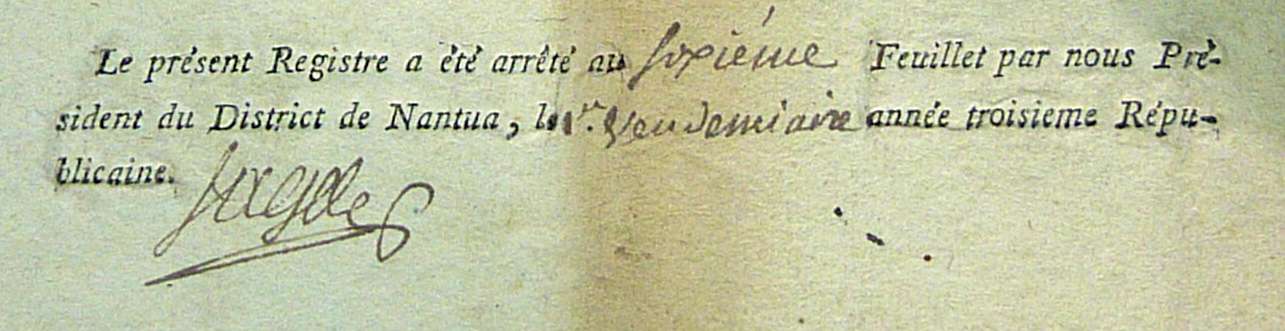 Le présent Registre a été arrêté au sixiéme Feuillet par nous Pré-
sident du District de Nantua, le 1.er Vendemiaire année troisieme Répu-
blicaine.